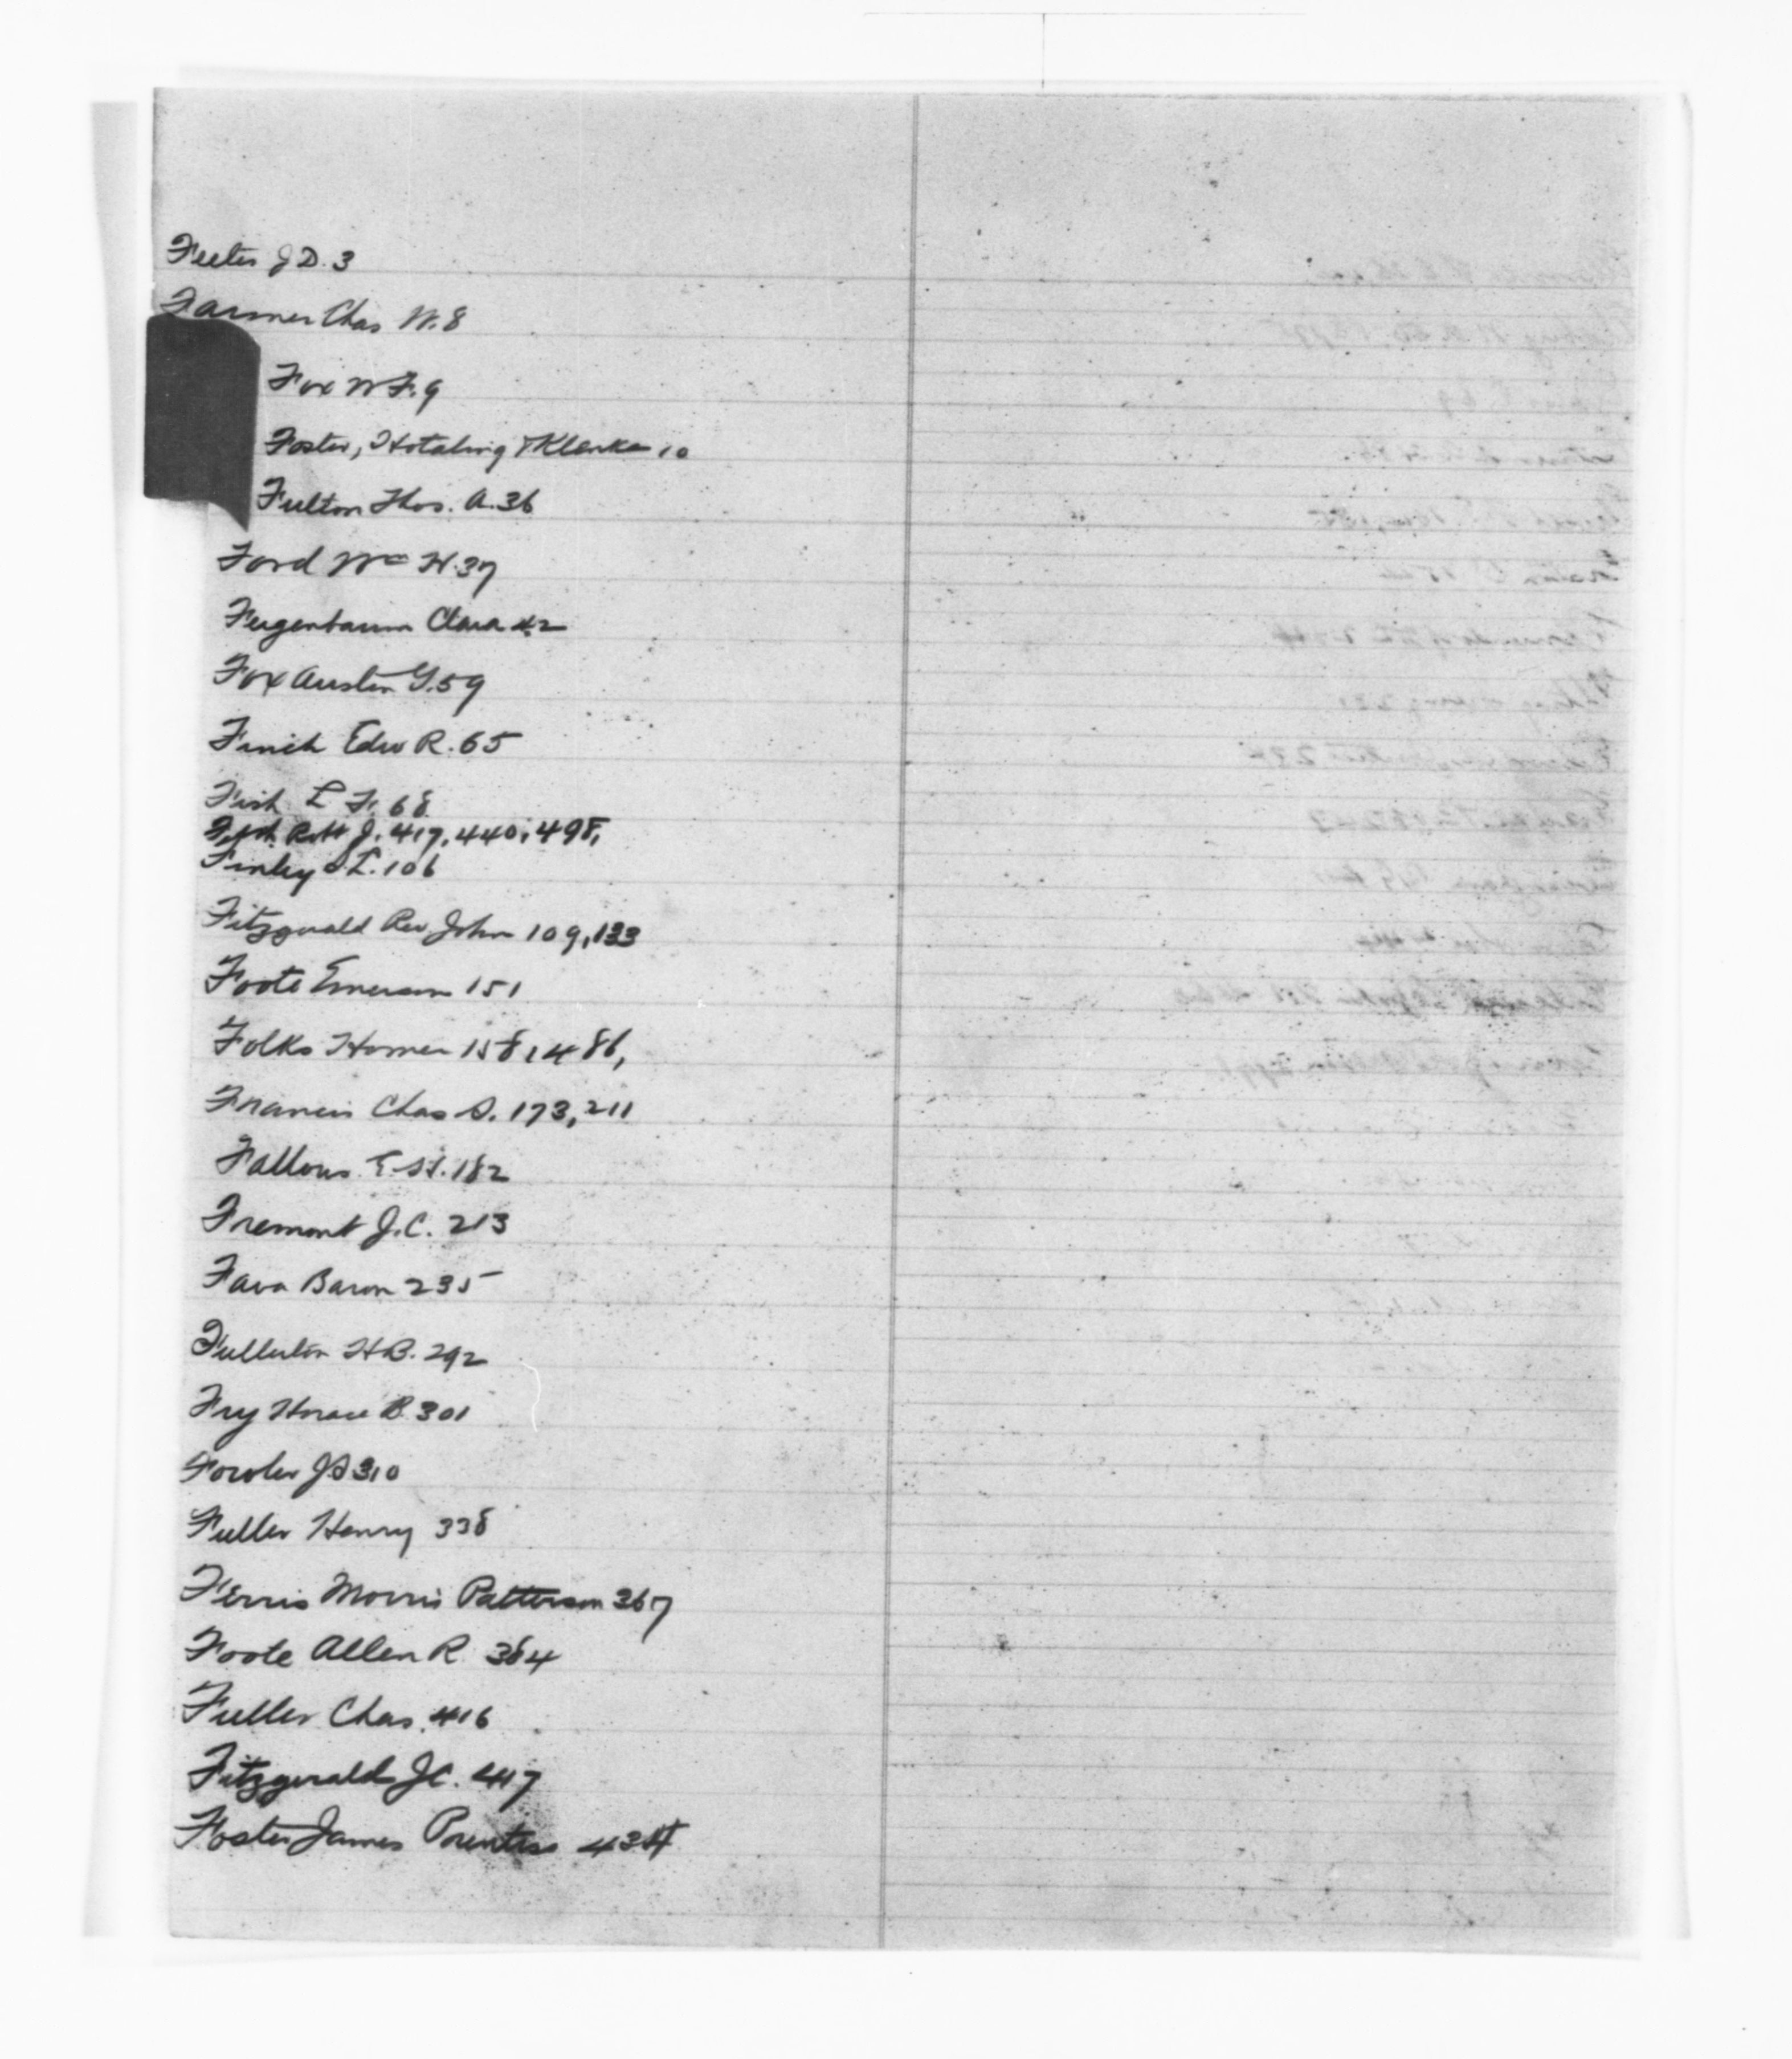 Feeter J D. 3
Farmer Chas W. 8
Fox W F. 9
Foster, Hotaling & Klenke 10
Fulton Thos. A. 36
Ford Wm H. 37
Feigenbaum Clara 42
Fox Austen G. 59
Finch Edw R. 65
Fish L F. 68
Robt J. 417, 440, 498,
Finley L. 106
Fitzgerald Rev John 109, 133
Foote Emerson 151
Folks Homer 158, 486,
Francis Chas S. 173, 211
Fallows E. H. 182
Fremont J. C. 213
Fava Baron 235
Fullerton H B. 292
Fry Horace B. 301
Fowler J S 310
Fuller Henry 338
Ferris Morris Patterson 367
Foote Allen R. 384
Fuller Chas. 416
Fitzgerald J C. 417
Foster James Prentiss 434